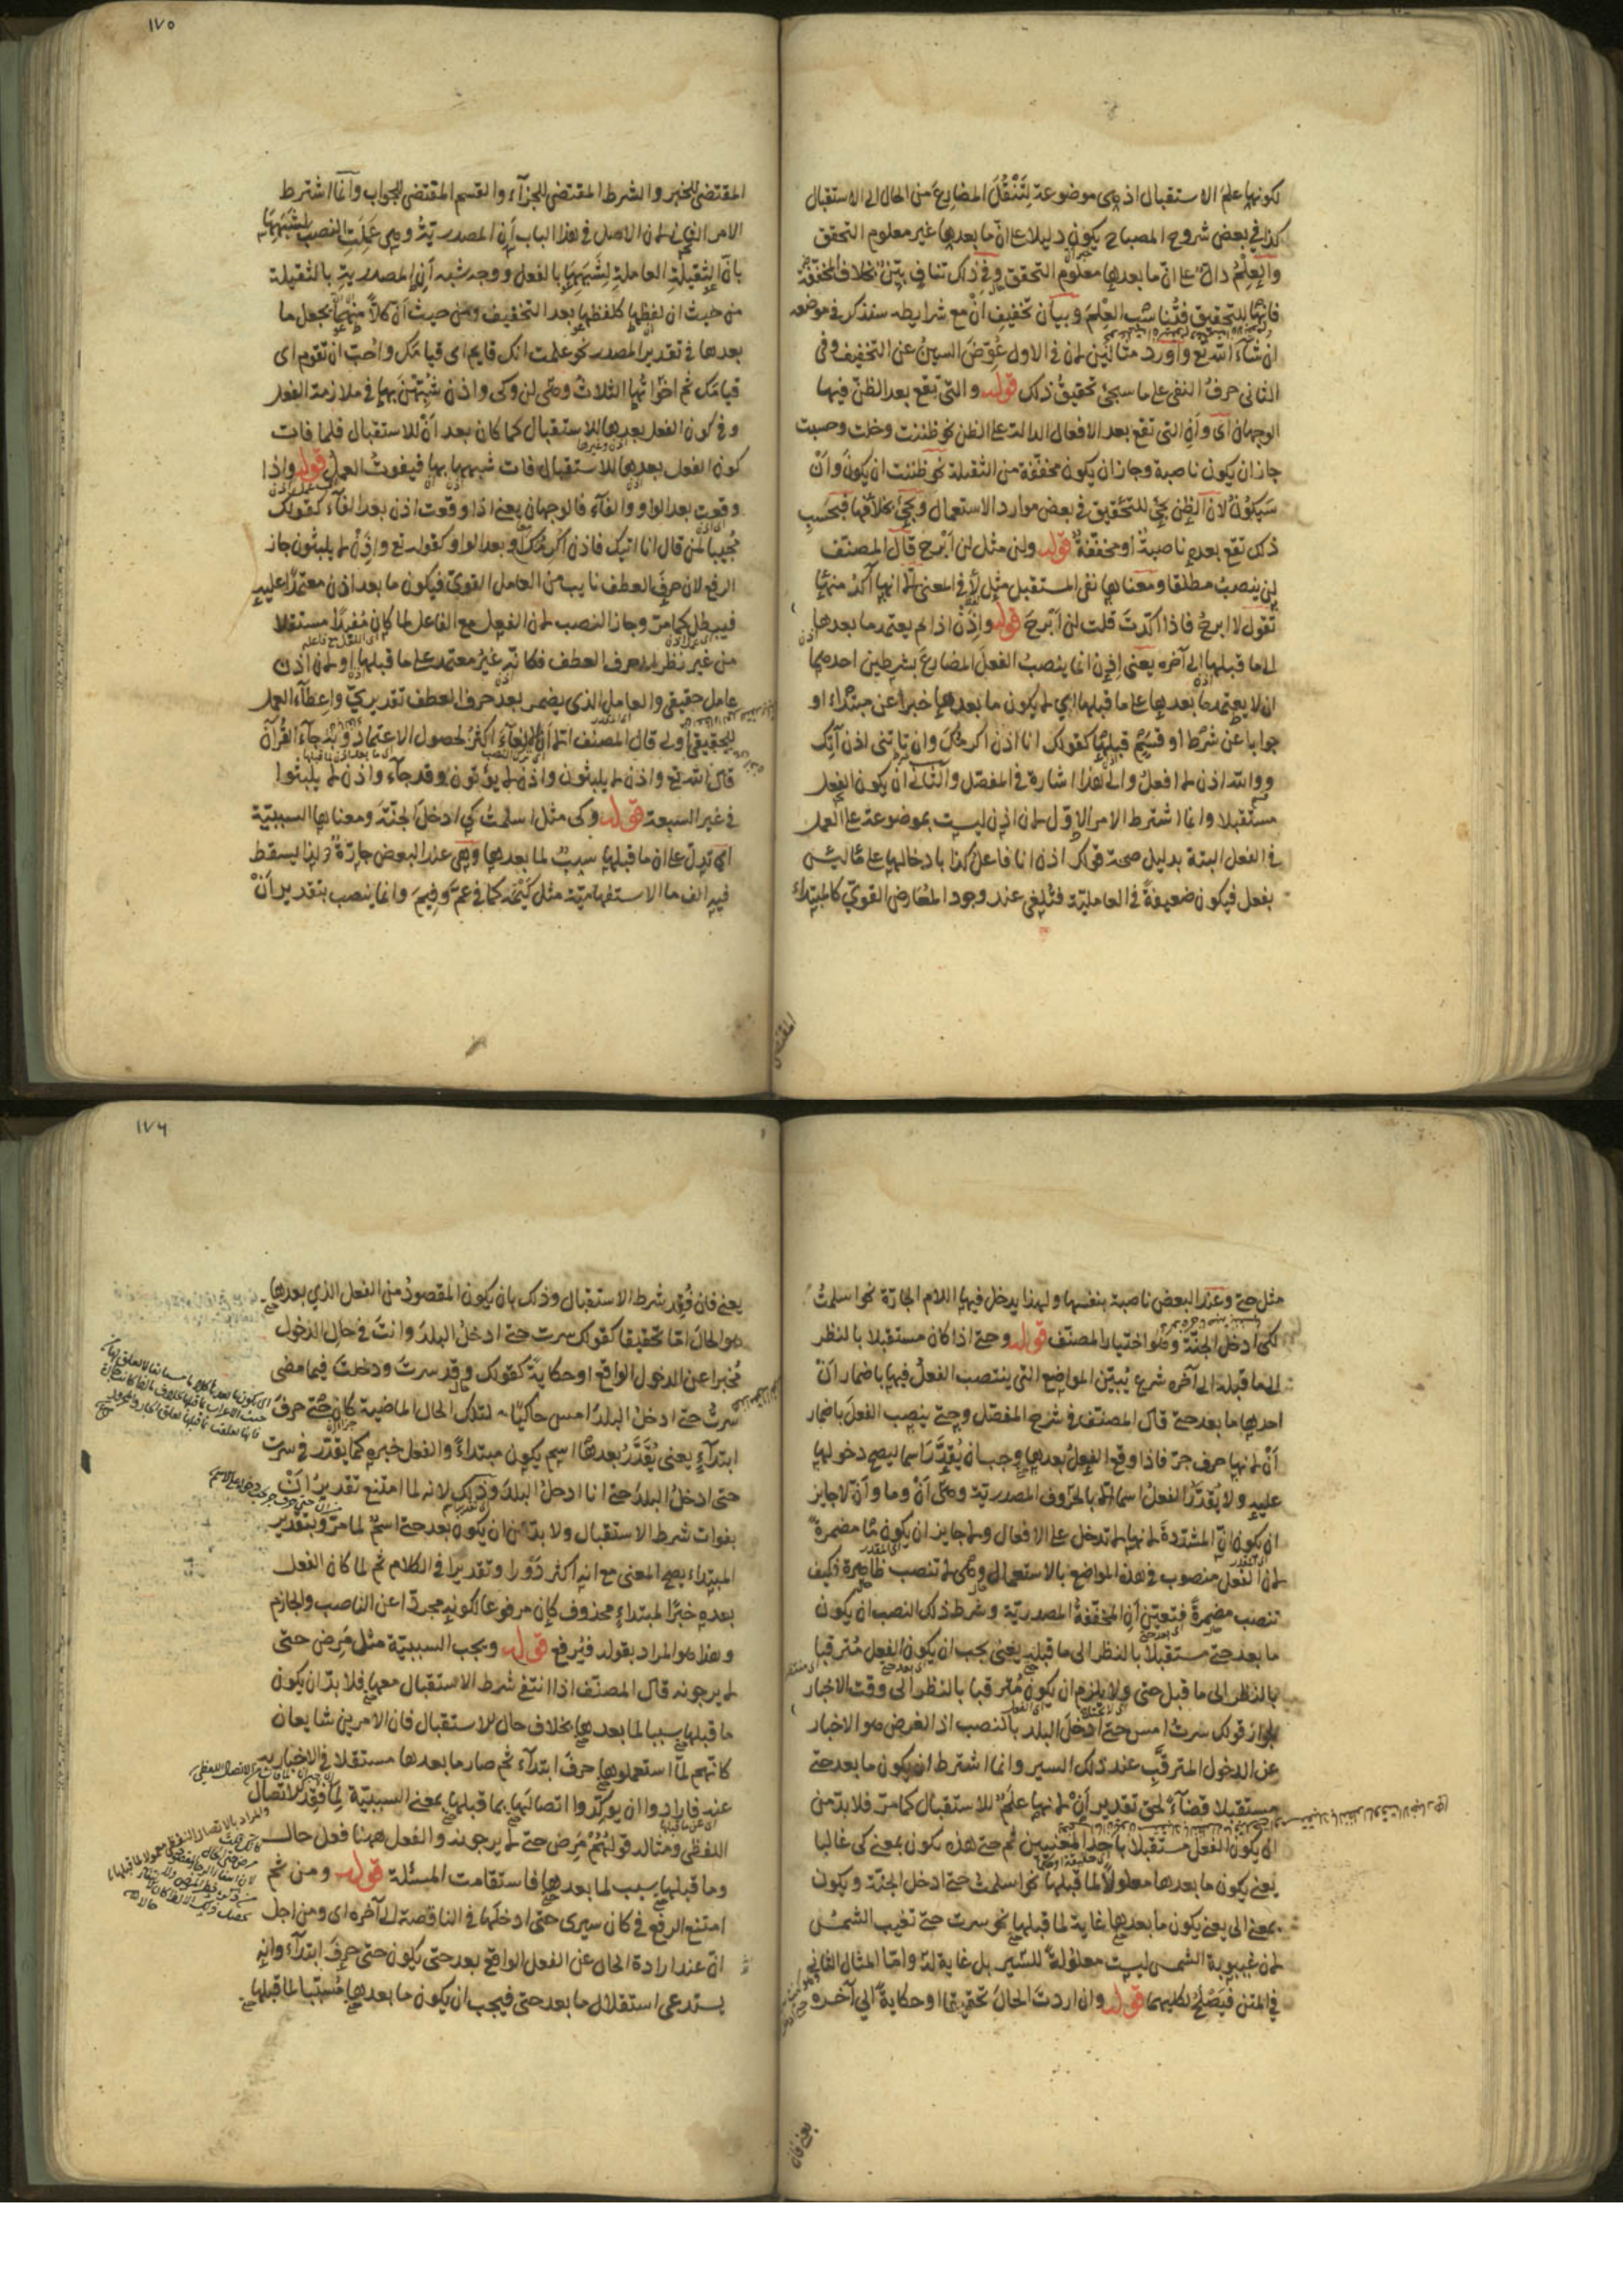 لكونها علم الاستقبال اذ هى موضوعة لتنقل المضارع من الحال الى الاستقبال
كذا في بعض شروح المصباح يكون دليلا على ان ما بعدها غير معلوم التحقق
والعلم دال على ان ما بعدها معلوم التحقق وفي ذلك تناف بيّن بخلاف المخففة
فانها للتحقيق فتناسب العلم وبيان تخفيف ان مع شرايطه سنذكر في موضعه
ان شآء الله تع واورد مثالين لان في الاول عُوّض السين عن التخفيف وفى
الثانى حرف النفى على ما سيجئ تحقيق ذلك قوله والتى تقع بعد الظن فيها
الوجهان اى وأن التى تقع بعد الافعال الدالة على الظن نحو ظننت وخلت وحسبت
جاز ان يكون ناصبة وجاز ان يكون مخففة من الثقيلة نحو ظننت ان يكون وان
سيكون لان الظن يجئ للتحقيق في بعض موارد الاستعمال ويجئ بخلافها فبحسب
ذلك تقع بعده ناصبة او مخففة قوله ولن مثل لن ابرح قال المصنف
لن ينصب مطلقا ومعناها نفى المستقبل مثل لا في المعنى الا انها آكد منها
تقول لا ابرح فاذا اكّدت قلت لن ابرح قوله واذن اذا لم يعتمد ما بعدها
على ما قبلها الى آخره يعنى اذن انما ينصب الفعل المضارع بشرطين احدهما
ان لا يعتمد ما بعدها على ما قبلها اى لا يكون ما بعدها خبرا عن مبتداء او
جوابا عن شرط او قسم قبلها كقولك انا اذن اكرمك وان تاتنى اذن آتك
ووالله اذن لا افعل والى هذا اشارة في المفصل والثانى ان يكون الفعل
مستقبلا وانما اشترط الامر الاول لان اذن ليست بموضوعة على العمل
في الفعل البتة بدليل صحة قولك اذن انا فاعل كذا بادخالها على ما ليس
بفعل فيكون ضعيفة في العاملية فتلغى عند وجود المعارض القوى كالمبتداء
المقتضى
١٧٥
المقتضى للخبر والشرط المقتضى للجزآء والقسم المقتضى للجواب وانما اشترط
الامر الثانى لان الاصل في هذا الباب أن المصدرية وهى عملت النصب لشبهها
بانّ الثقيلة العاملة لشبهها بالفعل ووجه شبه أن المصدرية بالثقيلة
من حيث ان لفظها كلفظها بعد التخفيف ومن حيث ان كلا منهما يجعل ما
بعدها في تقدير المصدر نحو علمت انك قايم اى قيامك واحب ان تقوم اى
قيامك ثم اخواتها الثلاث وهى لن وكى واذن شبهن بها في ملازمة الفعل
وفي كون الفعل بعدها للاستقبال كما كان بعد ان للاستقبال فلما فات
كون الفعل بعدها للاستقبال فات شبهها بها فيفوت العمل قوله واذا
وقعت بعد الواو والفآء فالوجهان يعنى اذا وقعت اذن بعد الفآء كقولك
مجيبا لمن قال انا اتيك فاذن اكرمك وبعد الواو كقوله تع واذن لا يلبثون جاز
الرفع لان حرف العطف نايب من العامل القوى فيكون ما بعد اذن معتمدا عليه
فيبطل كما مر وجاز النصب لان الفعل مع الفاعل لما كان مفيدا مستقلا
من غير نظر الى حرف العطف فكانه غير معتمد على ما قبلها او لان اذن
عامل حقيقى والعامل الذى يضمر بعد حرف العطف تقديرى واعطآء العمل
للحقيقى اولى قال المصنف الا ان الالغآء اكثر لحصول الاعتماد وبه جآء القرآن
قال الله تع واذن لا يلبثون واذن لا يؤتون وقد جآء واذن لا يلبثوا
في غير السبعة قوله وكى مثل اسلمت كى ادخل الجنة ومعناها السببية
اى تدل على ان ما قبلها سبب لما بعدها وهى عند البعض جارة ولذا يسقط
فيه الف ما الاستفهامية مثل كيمه كما في عم وفيم وانما ينصب بتقدير أن
مثل حتى وعند البعض ناصبة بنفسها ولهذا يدخل فيها اللام الجارة نحو اسلمت
لكى ادخل الجنة وهو اختيار المصنف قوله وحتى اذا كان مستقبلا بالنظر
الى ما قبله الى آخره شرع يبين المواضع التى ينتصب الفعل فيها باضمار ان
احدها ما بعد حتى قال المصنف في شرح المفصل وحتى ينصب الفعل باضمار
أن لانها حرف جر فاذا وقع الفعل بعدها وجب ان يُقدّر اسما ليصح دخولها
عليه ولا يقدر الفعل اسما الا بالحروف المصدرية وهى أن وما وأن لا جايز
ان يكون انّ المشددة لانها لا تدخل على الافعال ولا جايز ان يكون ما مضمرة
لان الفعل منصوب في هذه المواضع بالاستعمال وهى لا تنصب ظاهرة فكيف
تنصب مضمرة فتعين أن المخففة المصدرية وشرط ذلك النصب ان يكون
ما بعد حتى مستقبلا بالنظر الى ما قبله يعنى يجب ان يكون الفعل مترقبا
بالنظر الى ما قبل حتى ولا يلزم ان يكون مترقبا بالنظر الى وقت الاخبار
لجواز قولك سرت امس حتى ادخل البلد بالنصب اذ الغرض هو الاخبار
عن الدخول المترقب عند ذلك السير وانما اشترط ان يكون ما بعد حتى
مستقبلا قضآء لحق تقدير أن لانها علم للاستقبال كما مر فلا بد من
ان يكون الفعل مستقبلا باحد المعنيين ثم حتى هذه تكون بمعنى كى غالبا
يعنى يكون ما بعدها معلولا لما قبلها نحو اسلمت حتى ادخل الجنة ويكون
بمعنى الى يعنى يكون ما بعدها غاية لما قبلها نحو سرت حتى تغيب الشمس
لان غيبوبة الشمس ليست معلولة للسير بل غاية له واما المثال الثانى
في المتن فيصلح لكليهما قوله وان اردت الحال تحقيقا او حكاية الى آخره
يعنى فان
١٧٦
يعنى فان فُقد شرط الاستقبال وذلك بان يكون المقصود من الفعل الذي بعدها
هو الحال اما تحقيقا كقولك سرت حتى ادخل البلد وانت في حال الدخول
مُخبرا عن الدخول الواقع او حكاية كقولك وقد سرت ودخلت فيما مضى
سرت حتى ادخل البلد امس حاكيا لتلك الحال الماضية كان حتى حرف
ابتدآء يعنى يُقدّر بعدها اسم يكون مبتداء والفعل خبره كما يقدر في سرت
حتى ادخل البلد حتى انا ادخل البلد وذلك لانه لما امتنع تقدير أن
بفوات شرط الاستقبال ولا بد من ان يكون بعد حتى اسم لما مر وبتقدير
المبتداء يصح المعنى مع انه اكثر دورا وتقديرا في الكلام ثم لما كان الفعل
بعده خبرا لمبتداء محذوف كان مرفوعا لكونه مجردا عن الناصب والجازم
وهذا هو المراد بقوله فيرفع قوله ويجب السببية مثل مرض حتى
لا يرجونه قال المصنف اذا انتفى شرط الاستقبال معها فلا بد ان يكون
ما قبلها سببا لما بعدها بخلاف حال الاستقبال فان الامرين شايعان
كانهم لما استعملوها حرف ابتدآء ثم صار ما بعدها مستقلا في الاخبار به
عنه فارادوا ان يوكدوا اتصالها بما قبلها بمعنى السببية لما فقد الاتصال
اللفظى ومثاله قولهم مرض حتى لا يرجونه والفعل ههنا فعل حال
وما قبلها سبب لما بعدها فاستقامت المسئلة قوله ومن ثم
امتنع الرفع في كان سيرى حتى ادخلها في الناقصة الى آخره اى ومن اجل
ان عند ارادة الحال عن الفعل الواقع بعد حتى يكون حتى حرف ابتدآء وانه
يستدعى استقلال ما بعد حتى فيجب ان يكون ما بعدها مسببا لما قبلها